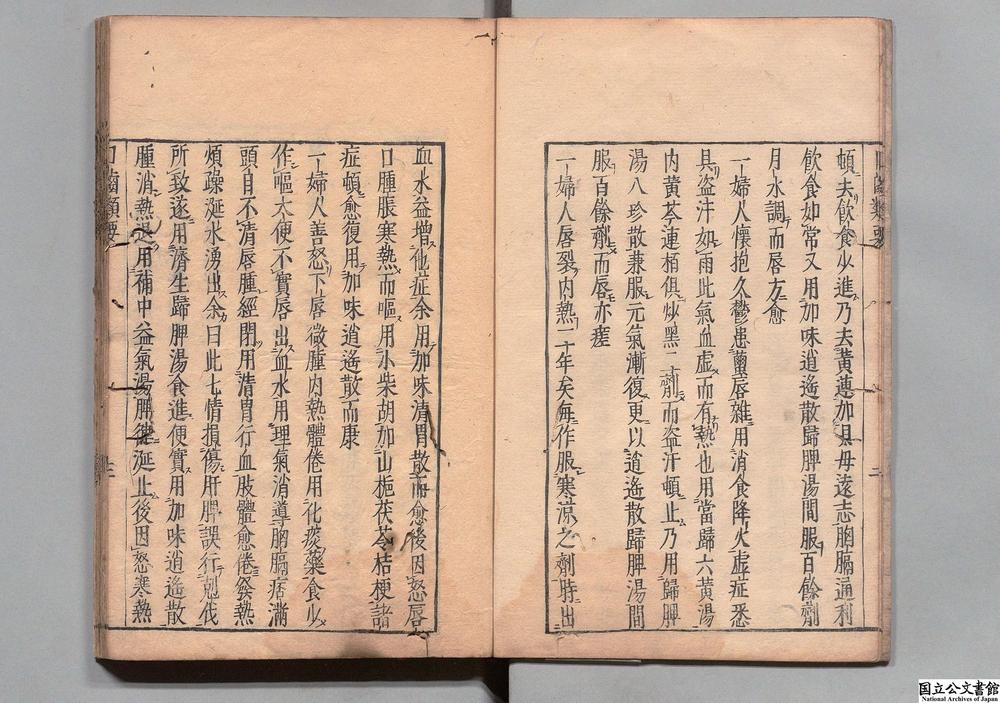 頓去飲食少進乃去黃連加貝母遠志胸膈通利
飲食如常又用加味逍遙散歸脾湯間服百餘劑
月水調而唇方愈
一婦人懷抱久鬱患繭唇雜用消食降火虛症悉
具盜汗如雨此氣血虛而有熱也用當歸六黃湯
內黃芩連栢俱炒黑二劑而盜汗頓止乃用歸脾
湯八珍散兼服元氣漸復更以逍遙散歸脾湯間
服百餘劑而唇亦瘥
一婦人唇裂內熱二十年矣每作服寒涼之劑時出
血水益增他症余用加味清胃散而愈後因怒唇
口腫脹寒熱而嘔用小柴胡加山梔茯苓桔梗諸
症頓愈復用加味逍遙散而康
一婦人善怒下唇微腫內熱體倦用化痰藥食少
作嘔大便不實唇出血水用理氣消導胸膈痞滿
頭目不清唇腫經閉用清胃行血肢體愈倦發熱
煩躁涎水湧出余曰此七情損傷肝脾誤行剋伐
所致遂用濟生歸脾湯食進便實用加味逍遙散
腫消熱退用補中益氣湯脾健涎止後因怒寒熱
口齒類要
二
國立公文書館
National Archives of Japan